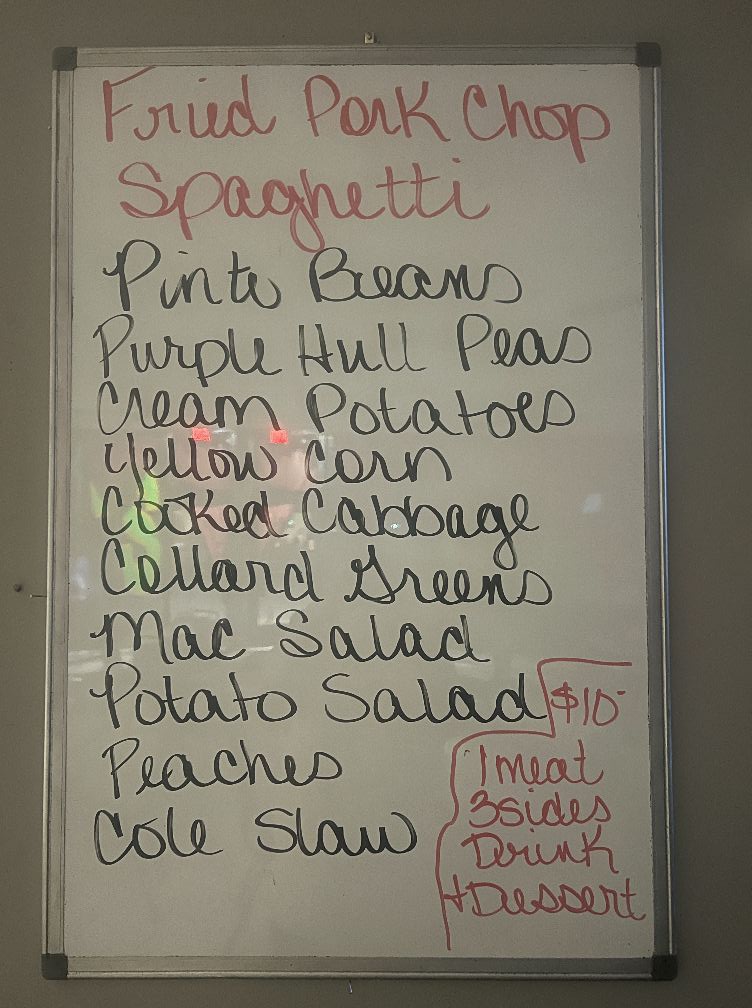 Fried Pork Chop
Spaghetti
Pinto Beans
Purple Hull Peas
Cream Potatoes
Yellow Corn
Cooked Cabbage
Collard Greens
Mac Salad
Potato Salad
Peaches
Cole Slaw
$10-
1 meat
3 sides
Drink
+ Dessert